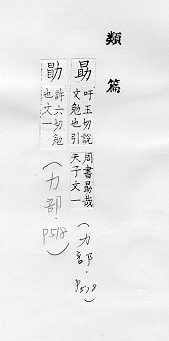 類篇
勗
吁玉切說
文勉也引
周書勗哉
夫子文一
(力部・P518)
勖
許六切勉
也文一
(力部・P518)